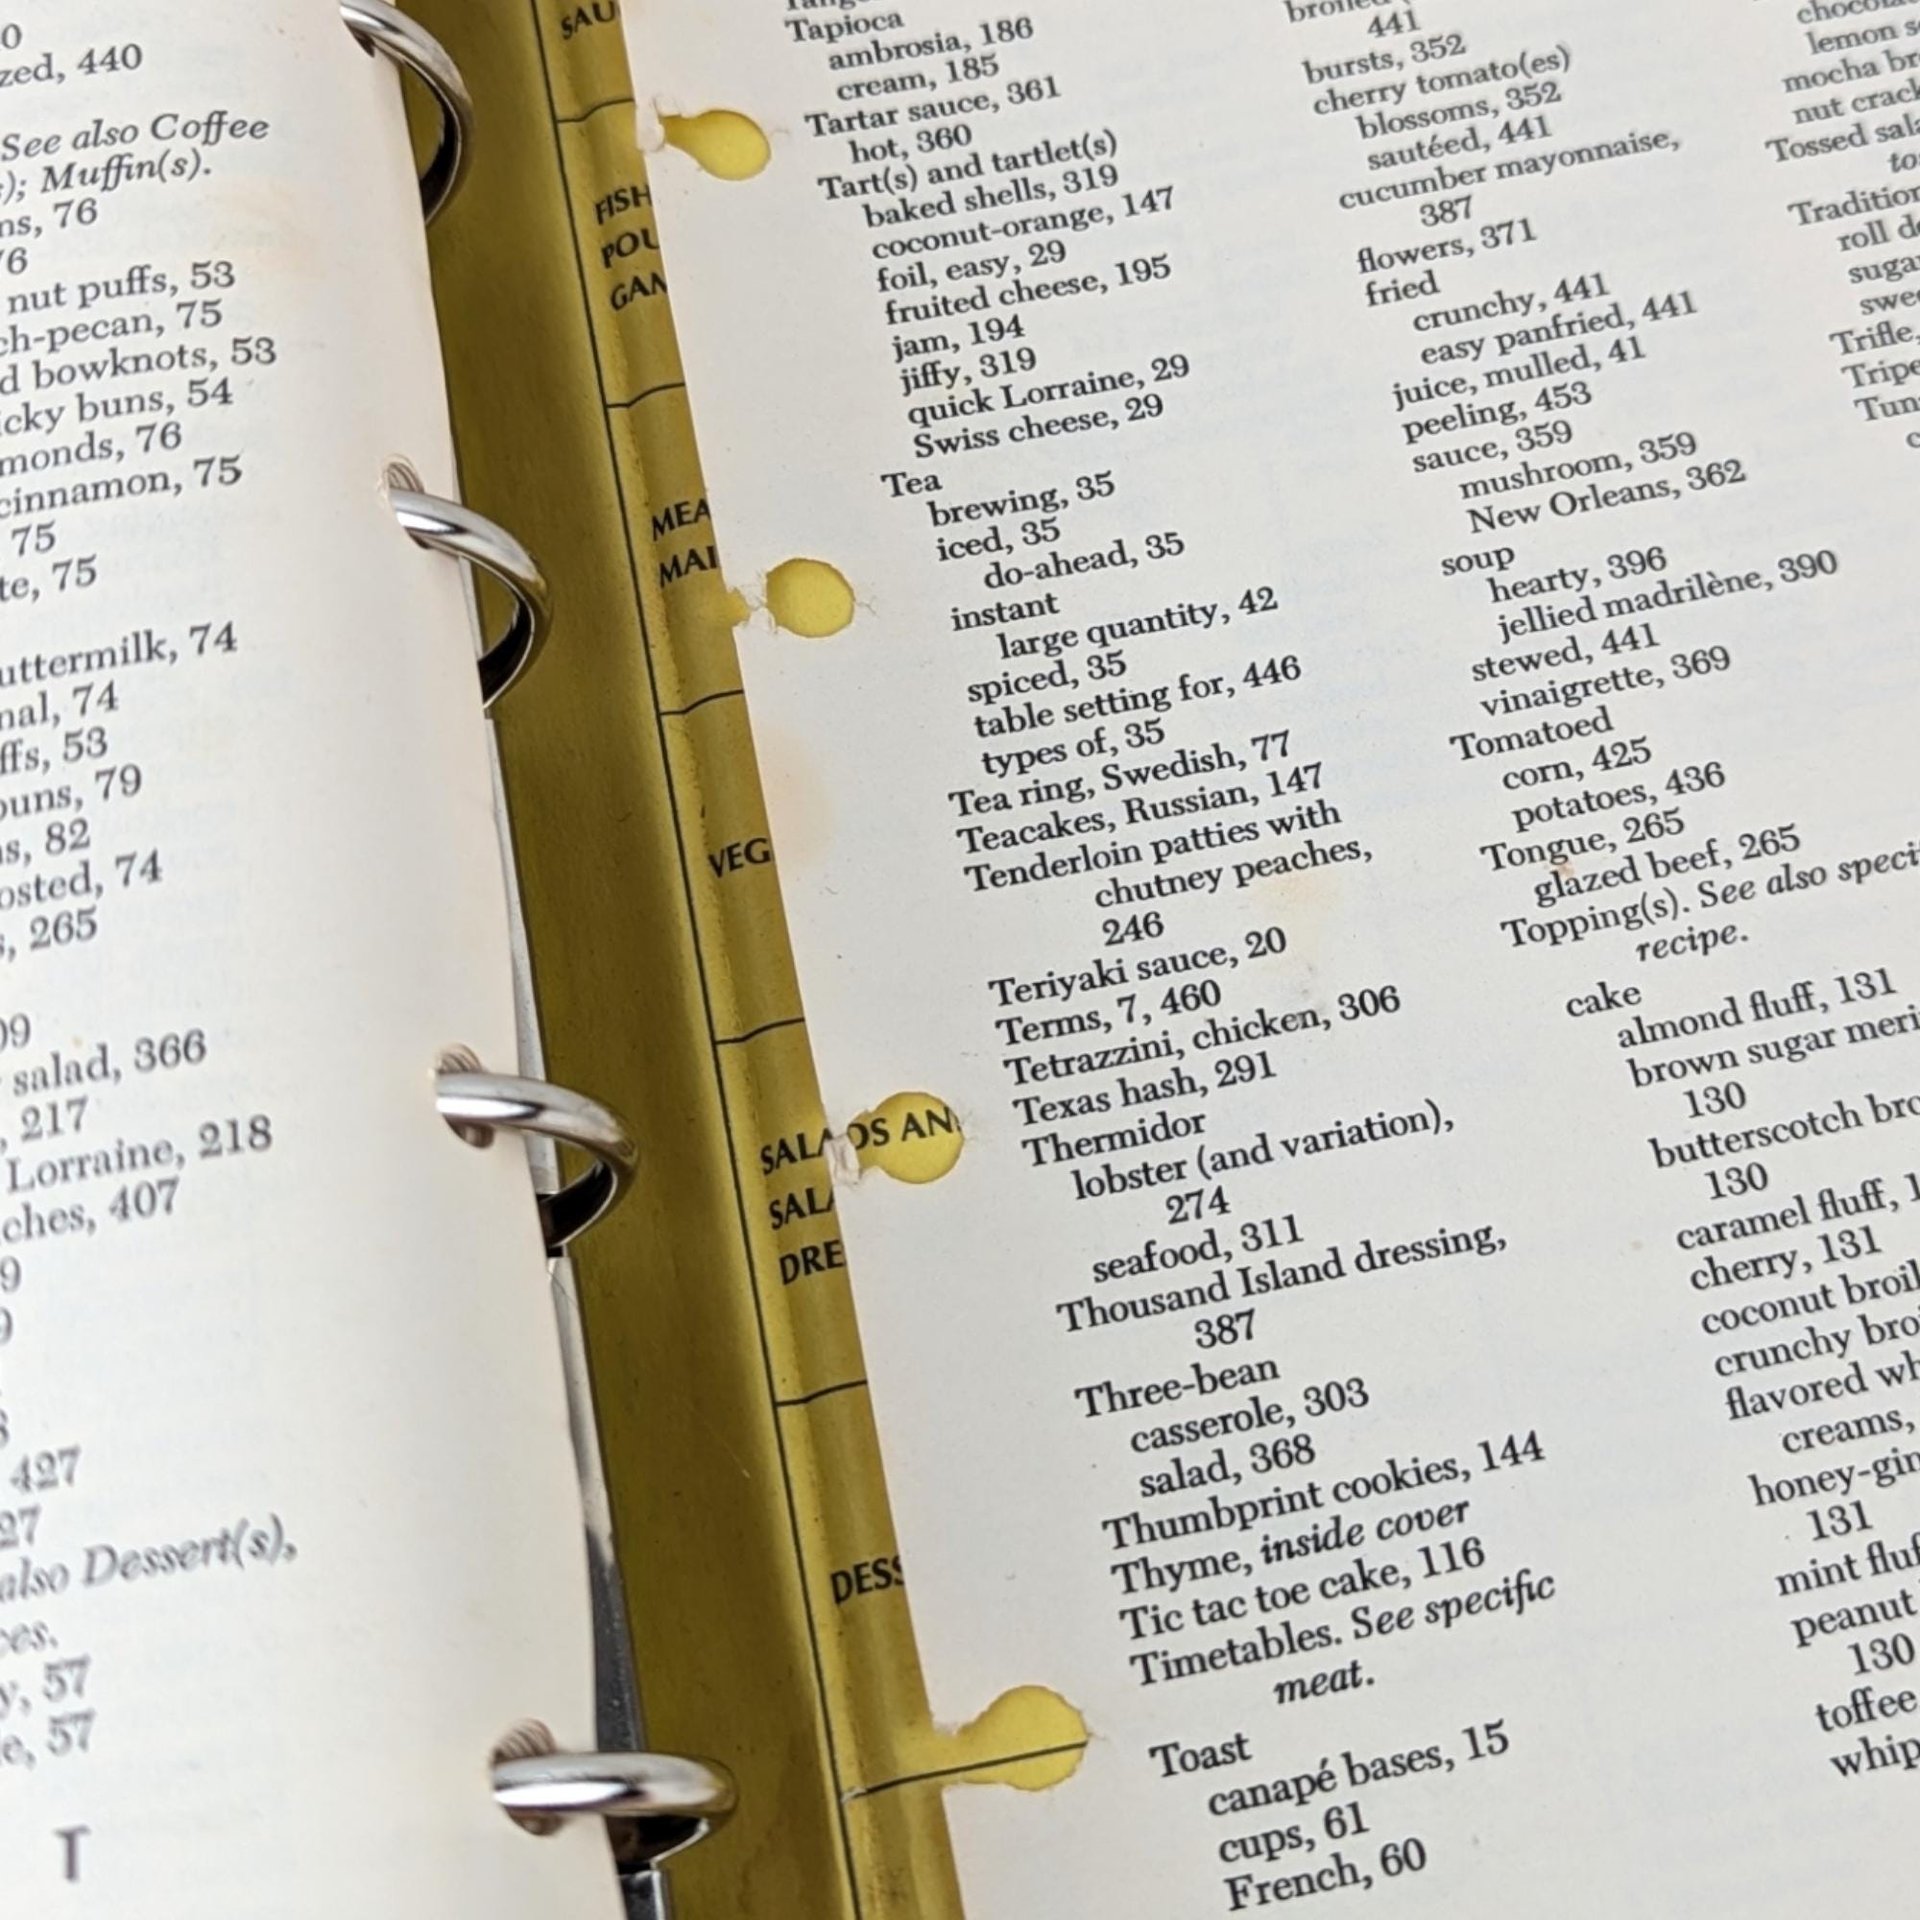 zed, 440
See also Coffee
Muffin(s).
76
nut puffs, 53
75
bowknots, 53
buns, 54
76
cinnamon, 75
75
75
74
74
53
79
82
74
265
salad, 366
217
Lorraine, 218
407
427
also Dessert(s),
57
57
T
SAU
FISH
POU
GAM
MEA
MAI
VEG
SALADS AN
SALA
DRE
DESS
Tapioca
ambrosia, 186
cream, 185
Tartar sauce, 361
hot, 360
Tart(s) and tartlet(s)
baked shells, 319
coconut-orange, 147
foil, easy, 29
fruited cheese, 195
jam, 194
jiffy, 319
quick Lorraine, 29
Swiss cheese, 29
Tea
brewing, 35
iced, 35
do-ahead, 35
instant
large quantity, 42
spiced, 35
table setting for, 446
types of, 35
Tea ring, Swedish, 77
Teacakes, Russian, 147
Tenderloin patties with
chutney peaches,
246
Teriyaki sauce, 20
Terms, 7, 460
Tetrazzini, chicken, 306
Texas hash, 291
Thermidor
lobster (and variation),
274
seafood, 311
Thousand Island dressing,
387
Three-bean
casserole, 303
salad, 368
Thumbprint cookies, 144
Thyme, inside cover
Tic tac toe cake, 116
Timetables. See specific
meat.
Toast
canapé bases, 15
cups, 61
French, 60
441
bursts, 352
cherry tomato(es)
blossoms, 352
sautéed, 441
cucumber mayonnaise,
387
flowers, 371
fried
crunchy, 441
easy panfried, 441
juice, mulled, 41
peeling, 453
sauce, 359
mushroom, 359
New Orleans, 362
soup
hearty, 396
jellied madrilène, 390
stewed, 441
vinaigrette, 369
Tomatoed
corn, 425
potatoes, 436
Tongue, 265
glazed beef, 265
Topping(s). See also
recipe.
cake
almond fluff, 131
brown sugar
130
butterscotch
130
caramel fluff,
cherry, 131
coconut
crunchy
flavored
creams,
131
mint
peanut
130
toffee
lemon
mocha
nut
Tossed
roll
Trifle,